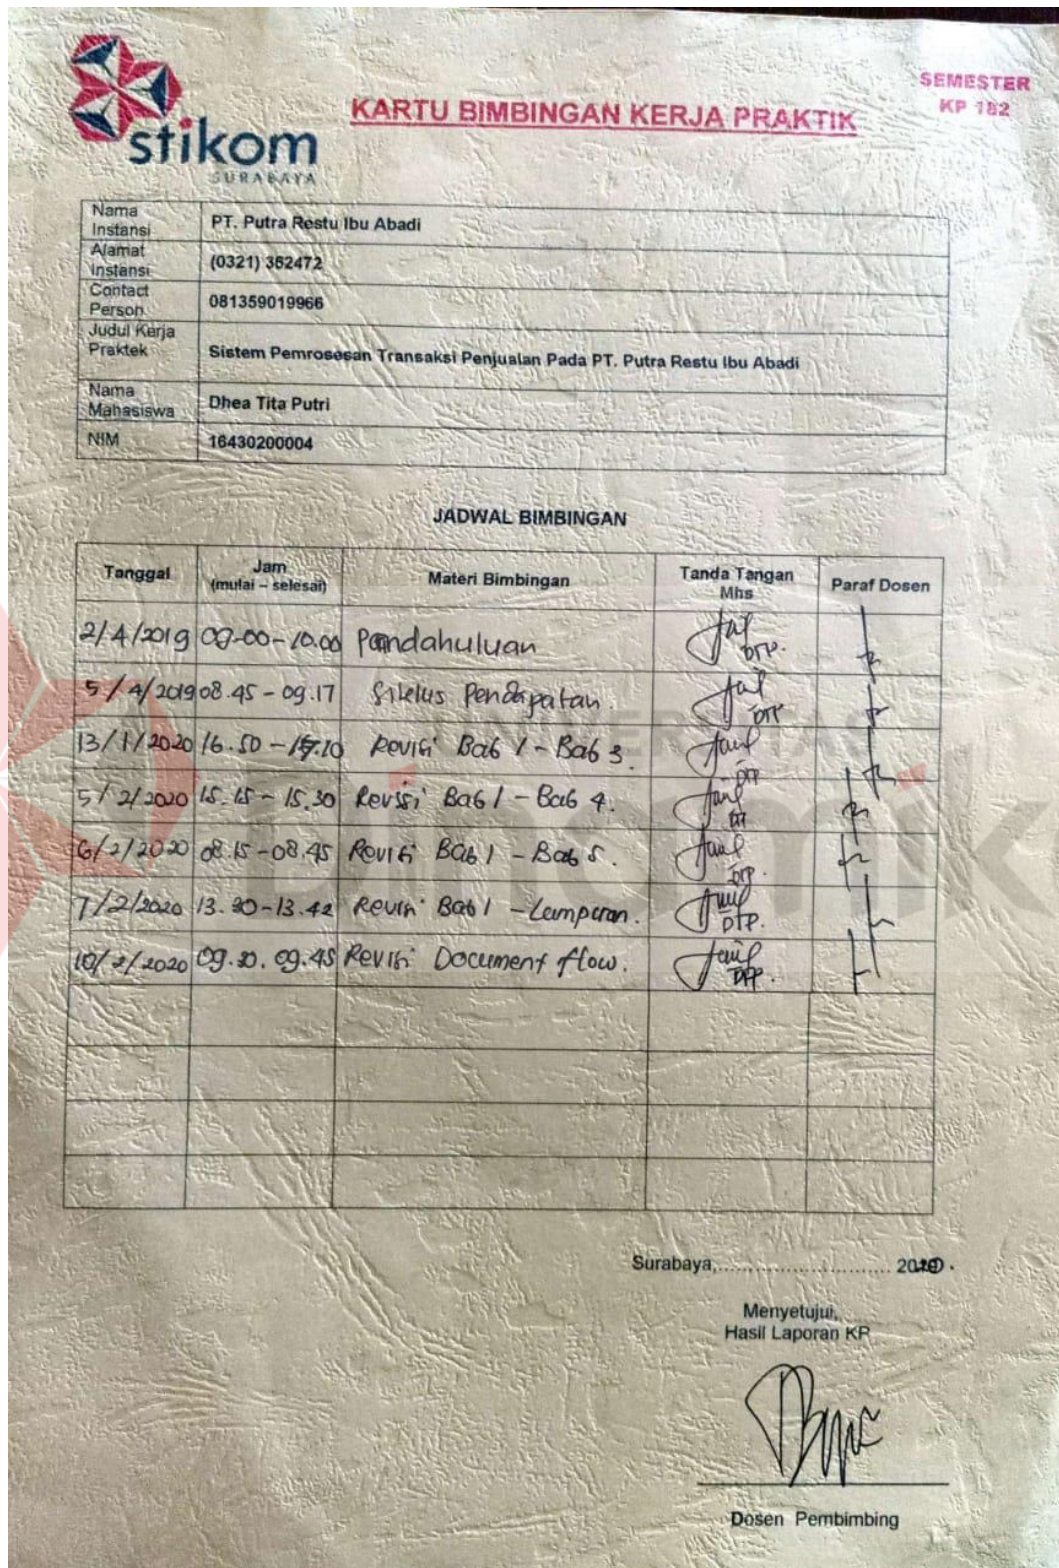 stikom
SURABAYA
KARTU BIMBINGAN KERJA PRAKTIK
SEMESTER
KP 182
Nama Instansi PT. Putra Restu Ibu Abadi
Alamat Instansi (0321) 362472
Contact Person 081359019966
Judul Kerja Praktek Sistem Pemrosesan Transaksi Penjualan Pada PT. Putra Restu Ibu Abadi
Nama Mahasiswa Dhea Tita Putri
NIM 16430200004
JADWAL BIMBINGAN
Tanggal Jam (mulai – selesai) Materi Bimbingan Tanda Tangan Mhs Paraf Dosen
2/4/2019 09.00-10.00 Pendahuluan DTP.
5/4/2019 08.45 - 09.17 Sikelus Pendapatan. DTP
13/1/2020 16.50 - 17.10 Revisi Bab 1 - Bab 3. DTP
5/2/2020 15.15 - 15.30 Revisi Bab 1 - Bab 4. DTP
6/2/2020 08.15 - 08.45 Revisi Bab 1 - Bab 5. DTP.
7/2/2020 13.30-13.42 Revisi Bab 1 - Lampiran. DTP.
10/2/2020 09.30. 09.45 Revisi Document flow. DTP.
UNIVERSITAS
Dinamik
Surabaya,.............................. 2020.
Menyetujui,
Hasil Laporan KP
Dosen Pembimbing